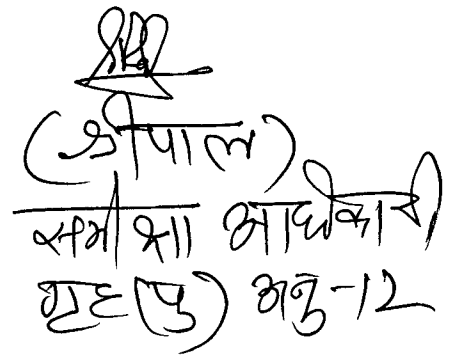 (श्रीपाल)
समीक्षा अधिकारी
गृह (पु) अनु-12